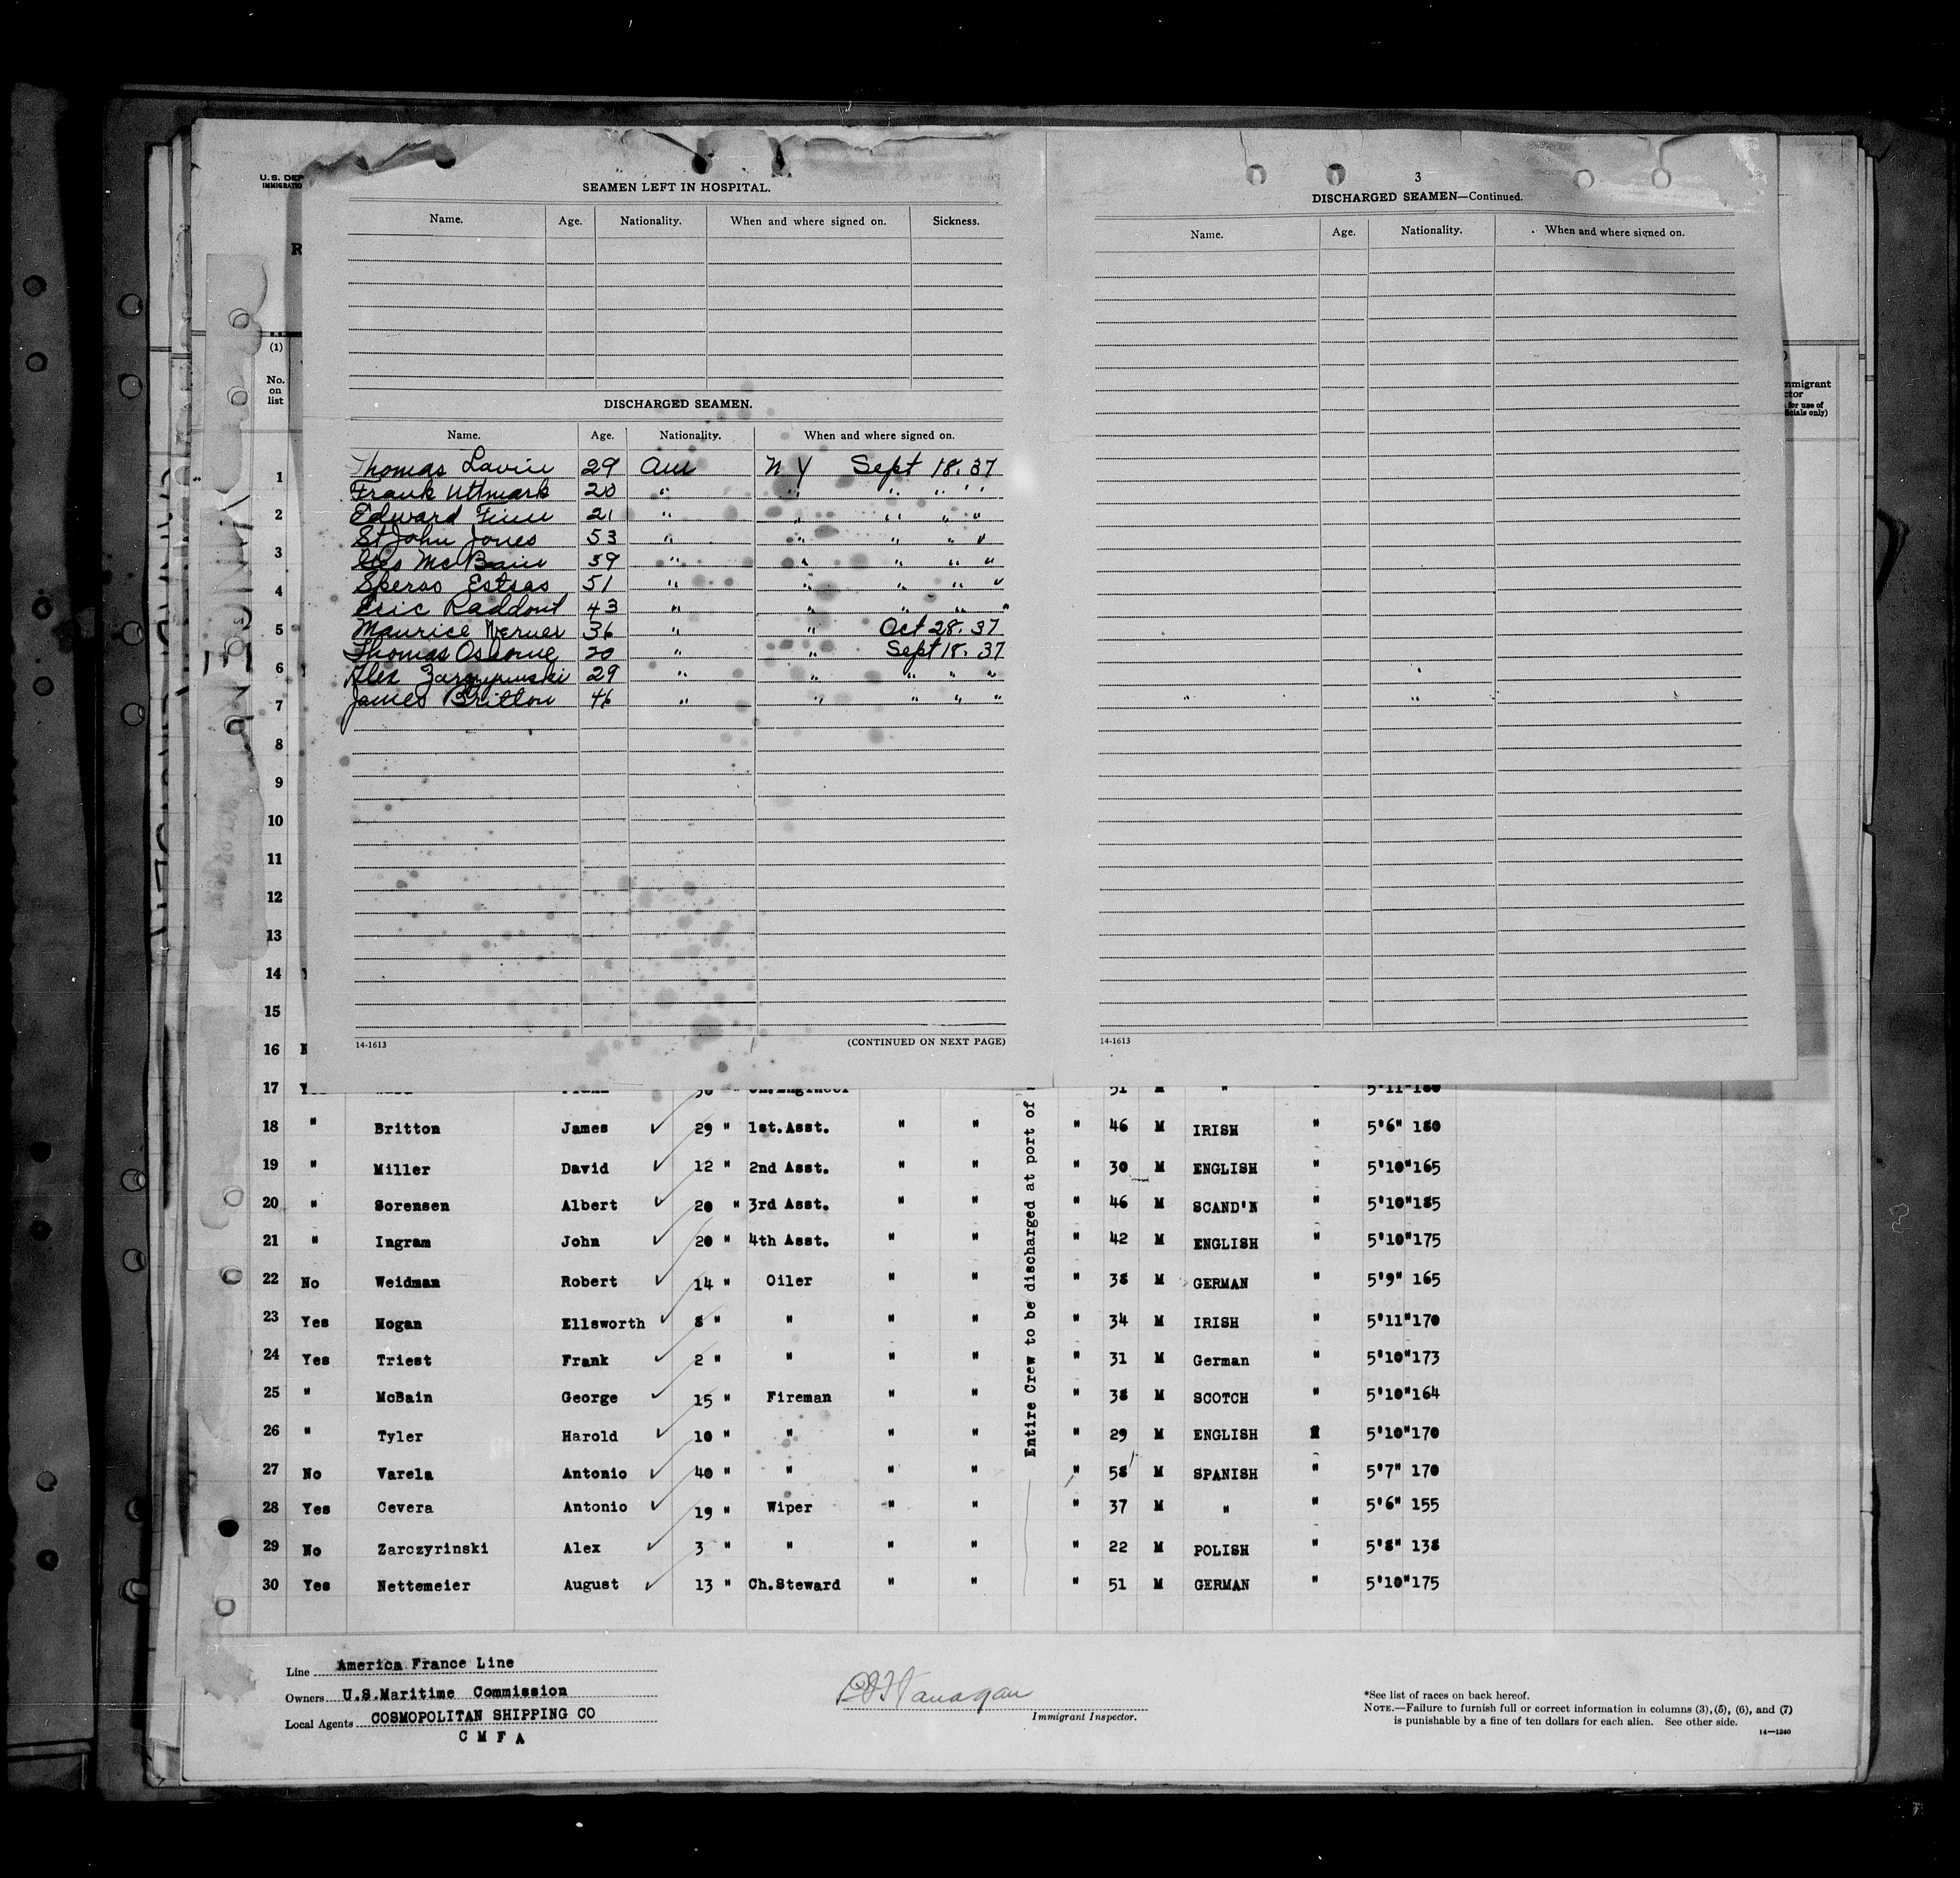 U.S. DEP
IMMIGRATIO
R
(1)
No.
on
list
SEAMEN LEFT IN HOSPITAL.
Name. Age. Nationality. When and where signed on. Sickness.
DISCHARGED SEAMEN.
Name. Age. Nationality. When and where signed on.
Thomas Lavin 29 Am N Y Sept 18. 37
Frank Uttmark 20 " " " " "
Edward Finn 21 " " " " "
St John Jones 53 " " " " "
Geo McBain 39 " " " " "
Speros Estsas 51 " " " " "
Eric Raddont 43 " " " " "
Maurice Werner 36 " " Oct 28. 37
Thomas Osborne 20 " " Sept 18. 37
Alex 29 " " " " "
James Britton 46 " " " " "
14-1613 (CONTINUED ON NEXT PAGE)
3
DISCHARGED SEAMEN—Continued.
Name. Age. Nationality. When and where signed on.
14-1613
mmigrant
ctor
for use of
ficials only)
1
2
3
4
5
6
7
8
9
10
11
12
13
14
15
16
17 51 M " " 5'11"180
18 " Britton James 29 " 1st.Asst. " " " 46 M IRISH " 5'6" 180
19 " Miller David 12 " 2nd Asst. " " " 30 M ENGLISH " 5'10"165
20 " Sorensen Albert 20 " 3rd Asst. " " " 46 M SCAND'N " 5'10"185
21 " Ingram John 20 " 4th Asst. " " " 42 M ENGLISH " 5'10"175
22 No Weidman Robert 14 " Oiler " " " 38 M GERMAN " 5'9" 165
23 Yes Hogan Ellsworth 8 " " " " " 34 M IRISH " 5'11"170
24 Yes Triest Frank 2 " " " " " 31 M German " 5'10"173
25 " McBain George 15 " Fireman " " " 38 M SCOTCH " 5'10"164
26 " Tyler Harold 10 " " " " " 29 M ENGLISH " 5'10"170
27 No Varela Antonio 40 " " " " " 58 M SPANISH " 5'7" 170
28 Yes Cevera Antonio 19 " Wiper " " " 37 M " " 5'6" 155
29 No Zarczyrinski Alex 3 " " " " " 22 M POLISH " 5'8" 138
30 Yes Nettemeier August 13 " Ch.Steward " " " 51 M GERMAN " 5'10"175
Entire Crew to be discharged at port of
Line America France Line
Owners U.S.Maritime Commission
Local Agents COSMOPOLITAN SHIPPING CO
C M F A
Flanagan
Immigrant Inspector.
*See list of races on back hereof.
NOTE.—Failure to furnish full or correct information in columns (3), (5), (6), and (7)
is punishable by a fine of ten dollars for each alien. See other side.
14—1240